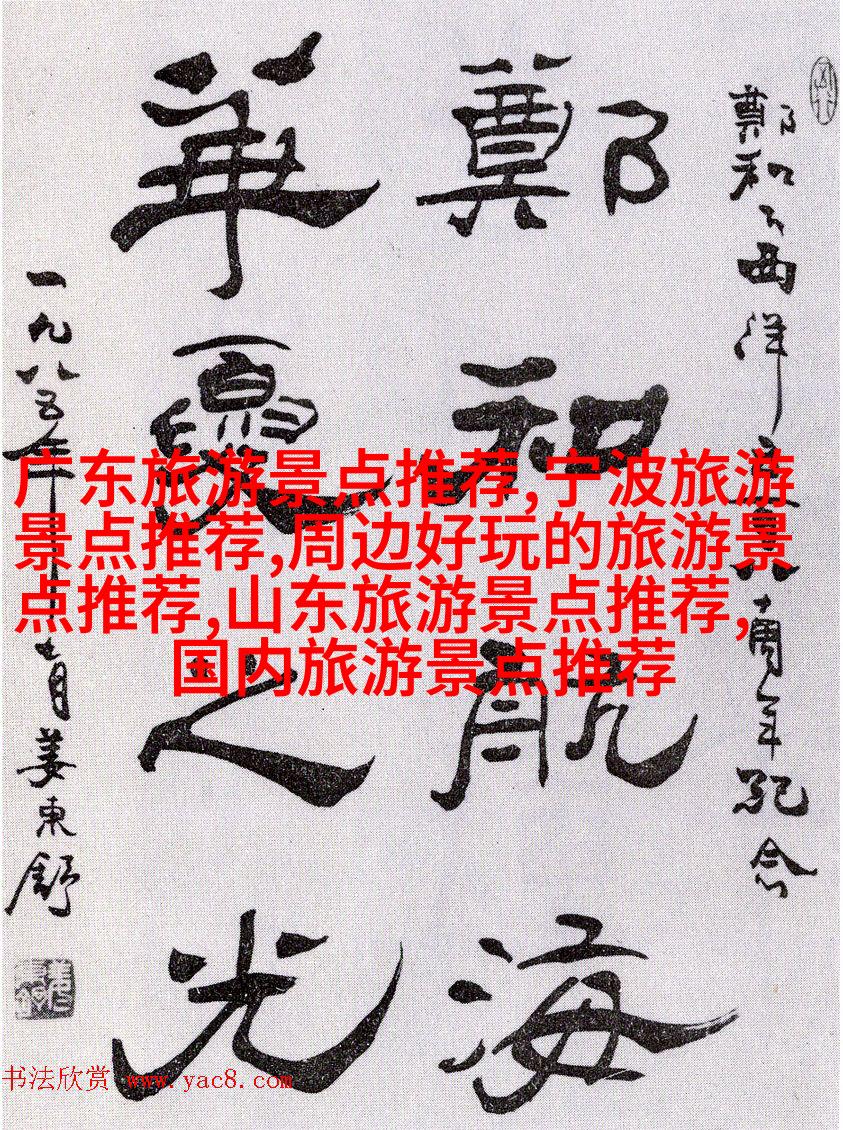 鄭和下西洋百八十周年紀念
鄭和航海
華夏之光
一九八五年月姜東舒
广东旅游景点推荐,宁波旅游
景点推荐,周边好玩的旅游景
点推荐,山东旅游景点推荐,
国内旅游景点推荐
书法欣赏 www.yac8.com